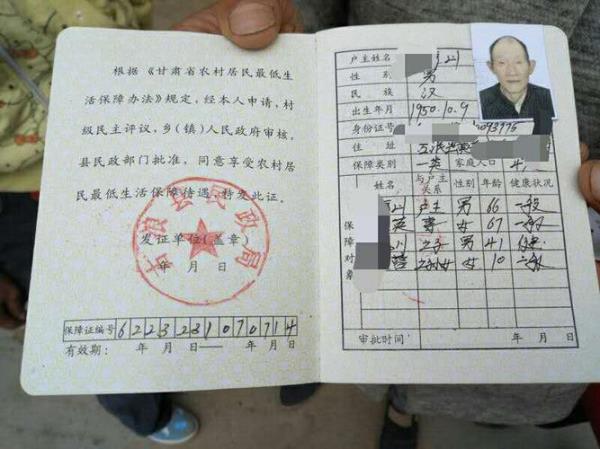 根据《甘肃省农村居民最低生
活保障办法》规定，经本人申请，村
级民主评议，乡(镇)人民政府审核，
县民政部门批准，同意享受农村居
民最低生活保障待遇，特发此证。
古浪县民政局
发证单位(盖章)
年 月 日
保障证编号 622323107 0714
有效期： 年 月 日—— 年 月 日
户主姓名
性别 男
民族 汉
出生年月 1950.10.9
身份证号
住址
保障类别 一类 家庭人口 4
保障对象
姓名 与户主关系 性别 年龄 健康状况
户主 男 66 一般
英 妻 女 67 一般
之子 男 41
之孙女 女 10 一般
审批时间 年 月 日